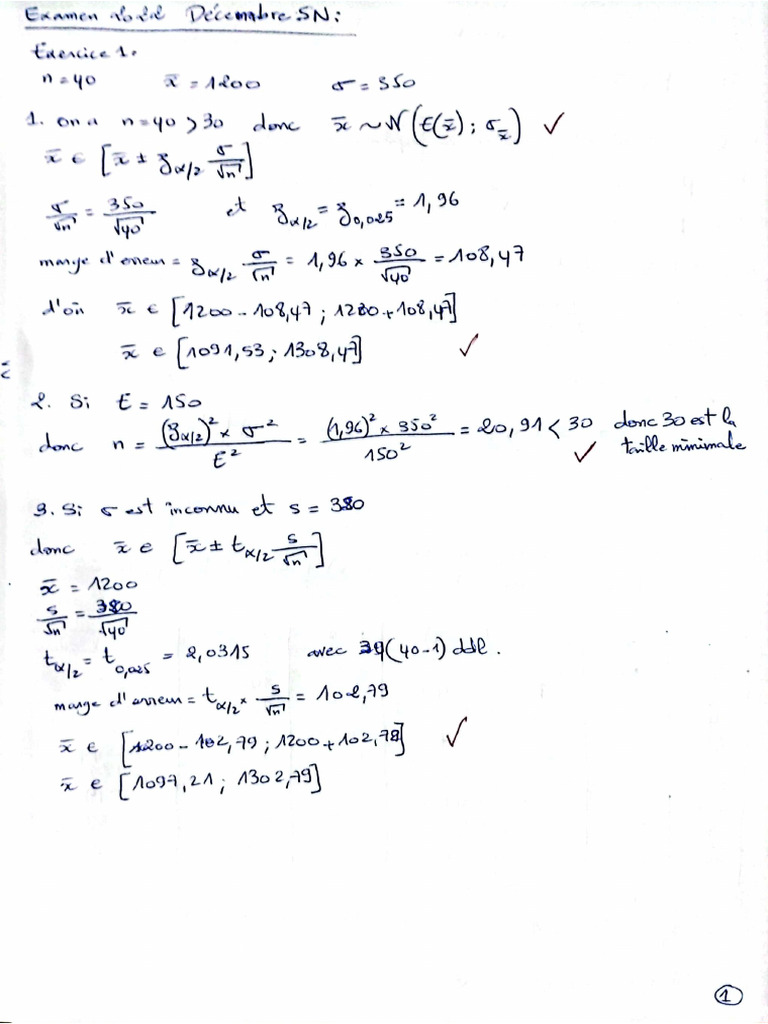 Examen 2022 Décembre SN:
Exercice 1.
n=40 x̄ = 1200 σ = 350
1. on a n=40 > 30 donc x̄ ~ N(E(x̄) ; σ_x̄) ✓
x̄ ∈ [x̄ ± z_α/2 σ/√n]
σ/√n = 350/√40 et z_α/2 = z_0,025 = 1,96
marge d'erreur = z_α/2 σ/√n = 1,96 × 350/√40 = 108,47
d'où x̄ ∈ [1200 - 108,47 ; 1200 + 108,47]
x̄ ∈ [1091,53 ; 1308,47] ✓
2. Si E = 150
donc n = (z_α/2)² × σ² / E² = (1,96)² × 350² / 150² = 20,91 < 30 donc 30 est la
taille minimale ✓
3. Si σ est inconnu et s = 380
donc x̄ ∈ [x̄ ± t_α/2 s/√n]
x̄ = 1200
s/√n = 380/√40
t_α/2 = t_0,025 = 2,0315 avec 39(40-1) ddl.
marge d'erreur = t_α/2 × s/√n = 102,79
x̄ ∈ [1200 - 102,79 ; 1200 + 102,78] ✓
x̄ ∈ [1097,21 ; 1302,79]
1